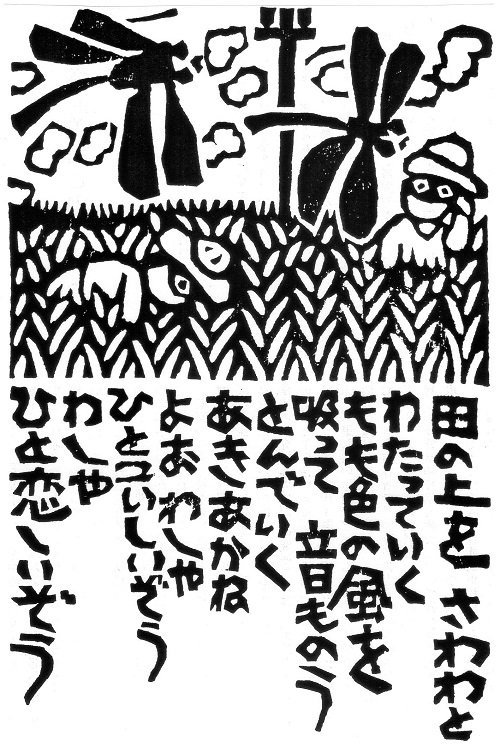 田の上を さわわと
わたっていく
もも色の風を
吸って 音ものう
とんでいく
あきあかね
よお わしゃ
ひとこいしいぞう
わしゃ
ひと恋しいぞう